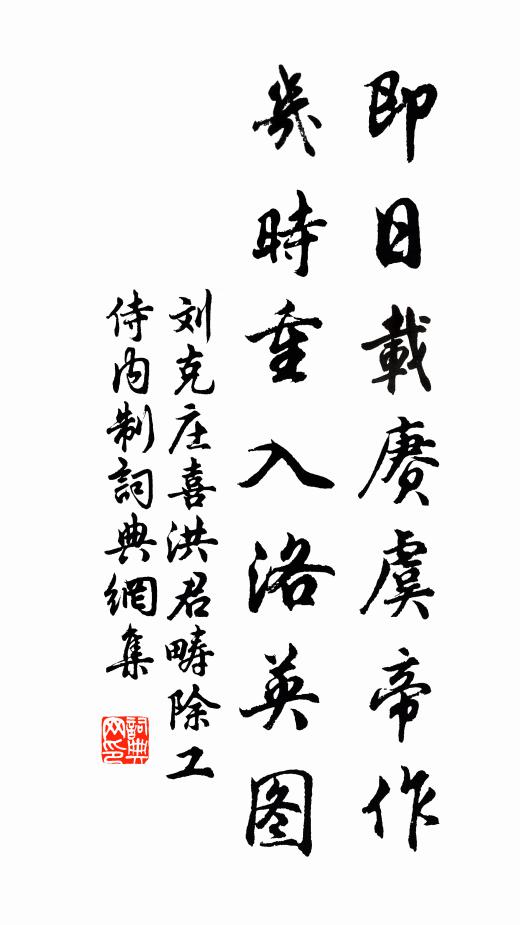 即日載赓虞帝作
幾時重入洛英图
刘克庄喜洪君畴除工
侍内制詞典網集
詞典网印